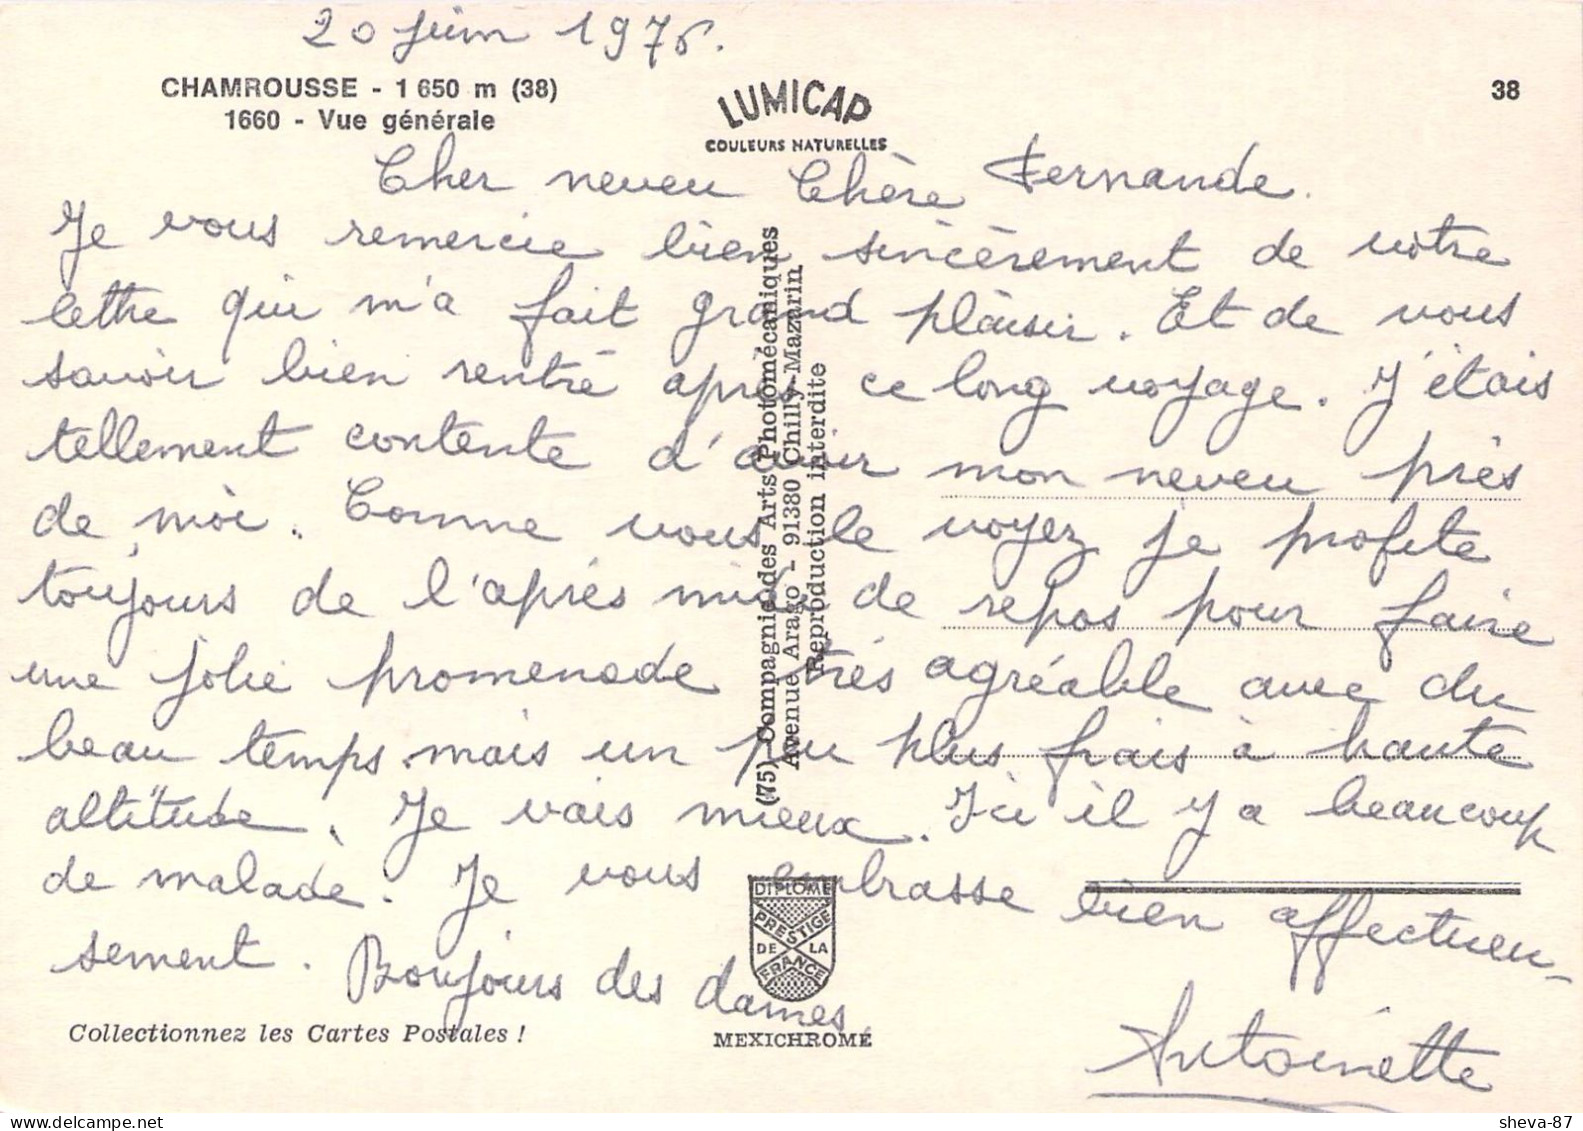 20 juin 1976.
CHAMROUSSE - 1 650 m (38)
1660 - Vue générale
LUMICAP
COULEURS NATURELLES
38
Cher neveu Chère Fernande.
Je vous remercie bien sincèrement de votre
lettre qui m'a fait grand plaisir. Et de vous
savoir bien rentré après ce long voyage. J'étais
tellement contente d'avoir mon neveu près
de moi. Comme vous le voyez je profite
toujours de l'après midi de repos pour faire
une jolie promenade très agréable avec du
beau temps mais un peu plus frais à haute
altitude. Je vais mieux. Ici il y a beaucoup
de malade. Je vous embrasse bien affectueu-
sement. Bonjours des dames.
Antoinette
(75) Compagnie des Arts Photomécaniques
Avenue Arago - 91380 Chilly-Mazarin
Reproduction interdite
DIPLOME
PRESTIGE
DE LA
FRANCE
MEXICHROME
Collectionnez les Cartes Postales !
sheva-87